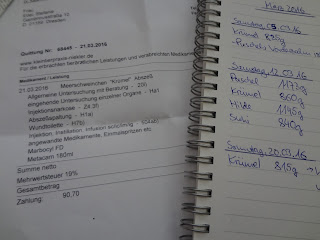 Quittung Nr. 66445 - 21.03.2016
Für die entstandenen tierärztlichen Leistungen und verwendeten Medikamente
Medikament / Leistung
21.03.2016 Meerschweinchen "Krümel" Abszeß
Allgemeine Untersuchung mit Beratung - 20I)
eingehende Untersuchung einzelner Organe - H91
Injektionsnarkose - 2a.3f)
Abszeßspaltung - H1a)
Wundtoilette - H7b)
Injektion, Instillation, Infusion
angewandte Medikamente, Einmalspritzen etc
Marbocyl FD
Metacam 180ml
Summe netto
Mehrwertsteuer 19%
Gesamtbetrag
Zahlung: 90,70
März 2016
Samstag 05.03.16
Krümel 825g
Samstag 12.03.16
Puschel 1173g
Krümel 860g
Hilde 1195g
Susi 840g
Sonntag 20.03.16
Krümel 815g